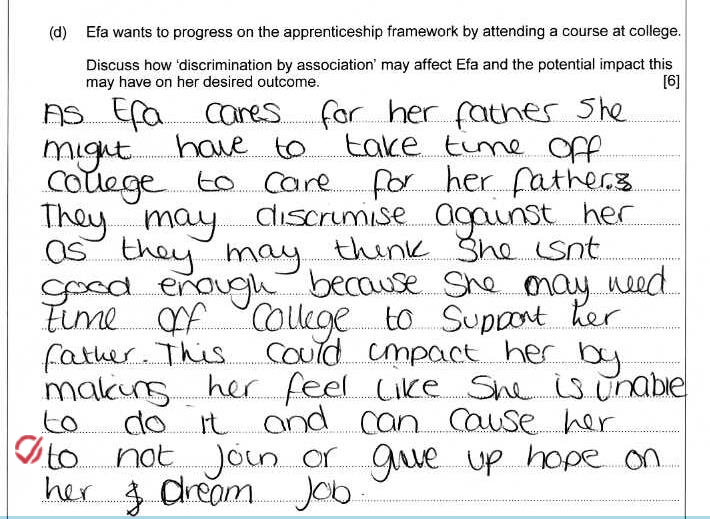 (d) Efa wants to progress on the apprenticeship framework by attending a course at college.
Discuss how 'discrimination by association' may affect Efa and the potential impact this
may have on her desired outcome. [6]
As Efa cares for her father She
might have to take time off
college to care for her father.
They may discrimise against her
as they may think She isnt
good enough because She may need
time off college to Support her
father. This could impact her by
making her feel like She is unable
to do it and can cause her
to not join or give up hope on
her dream job.